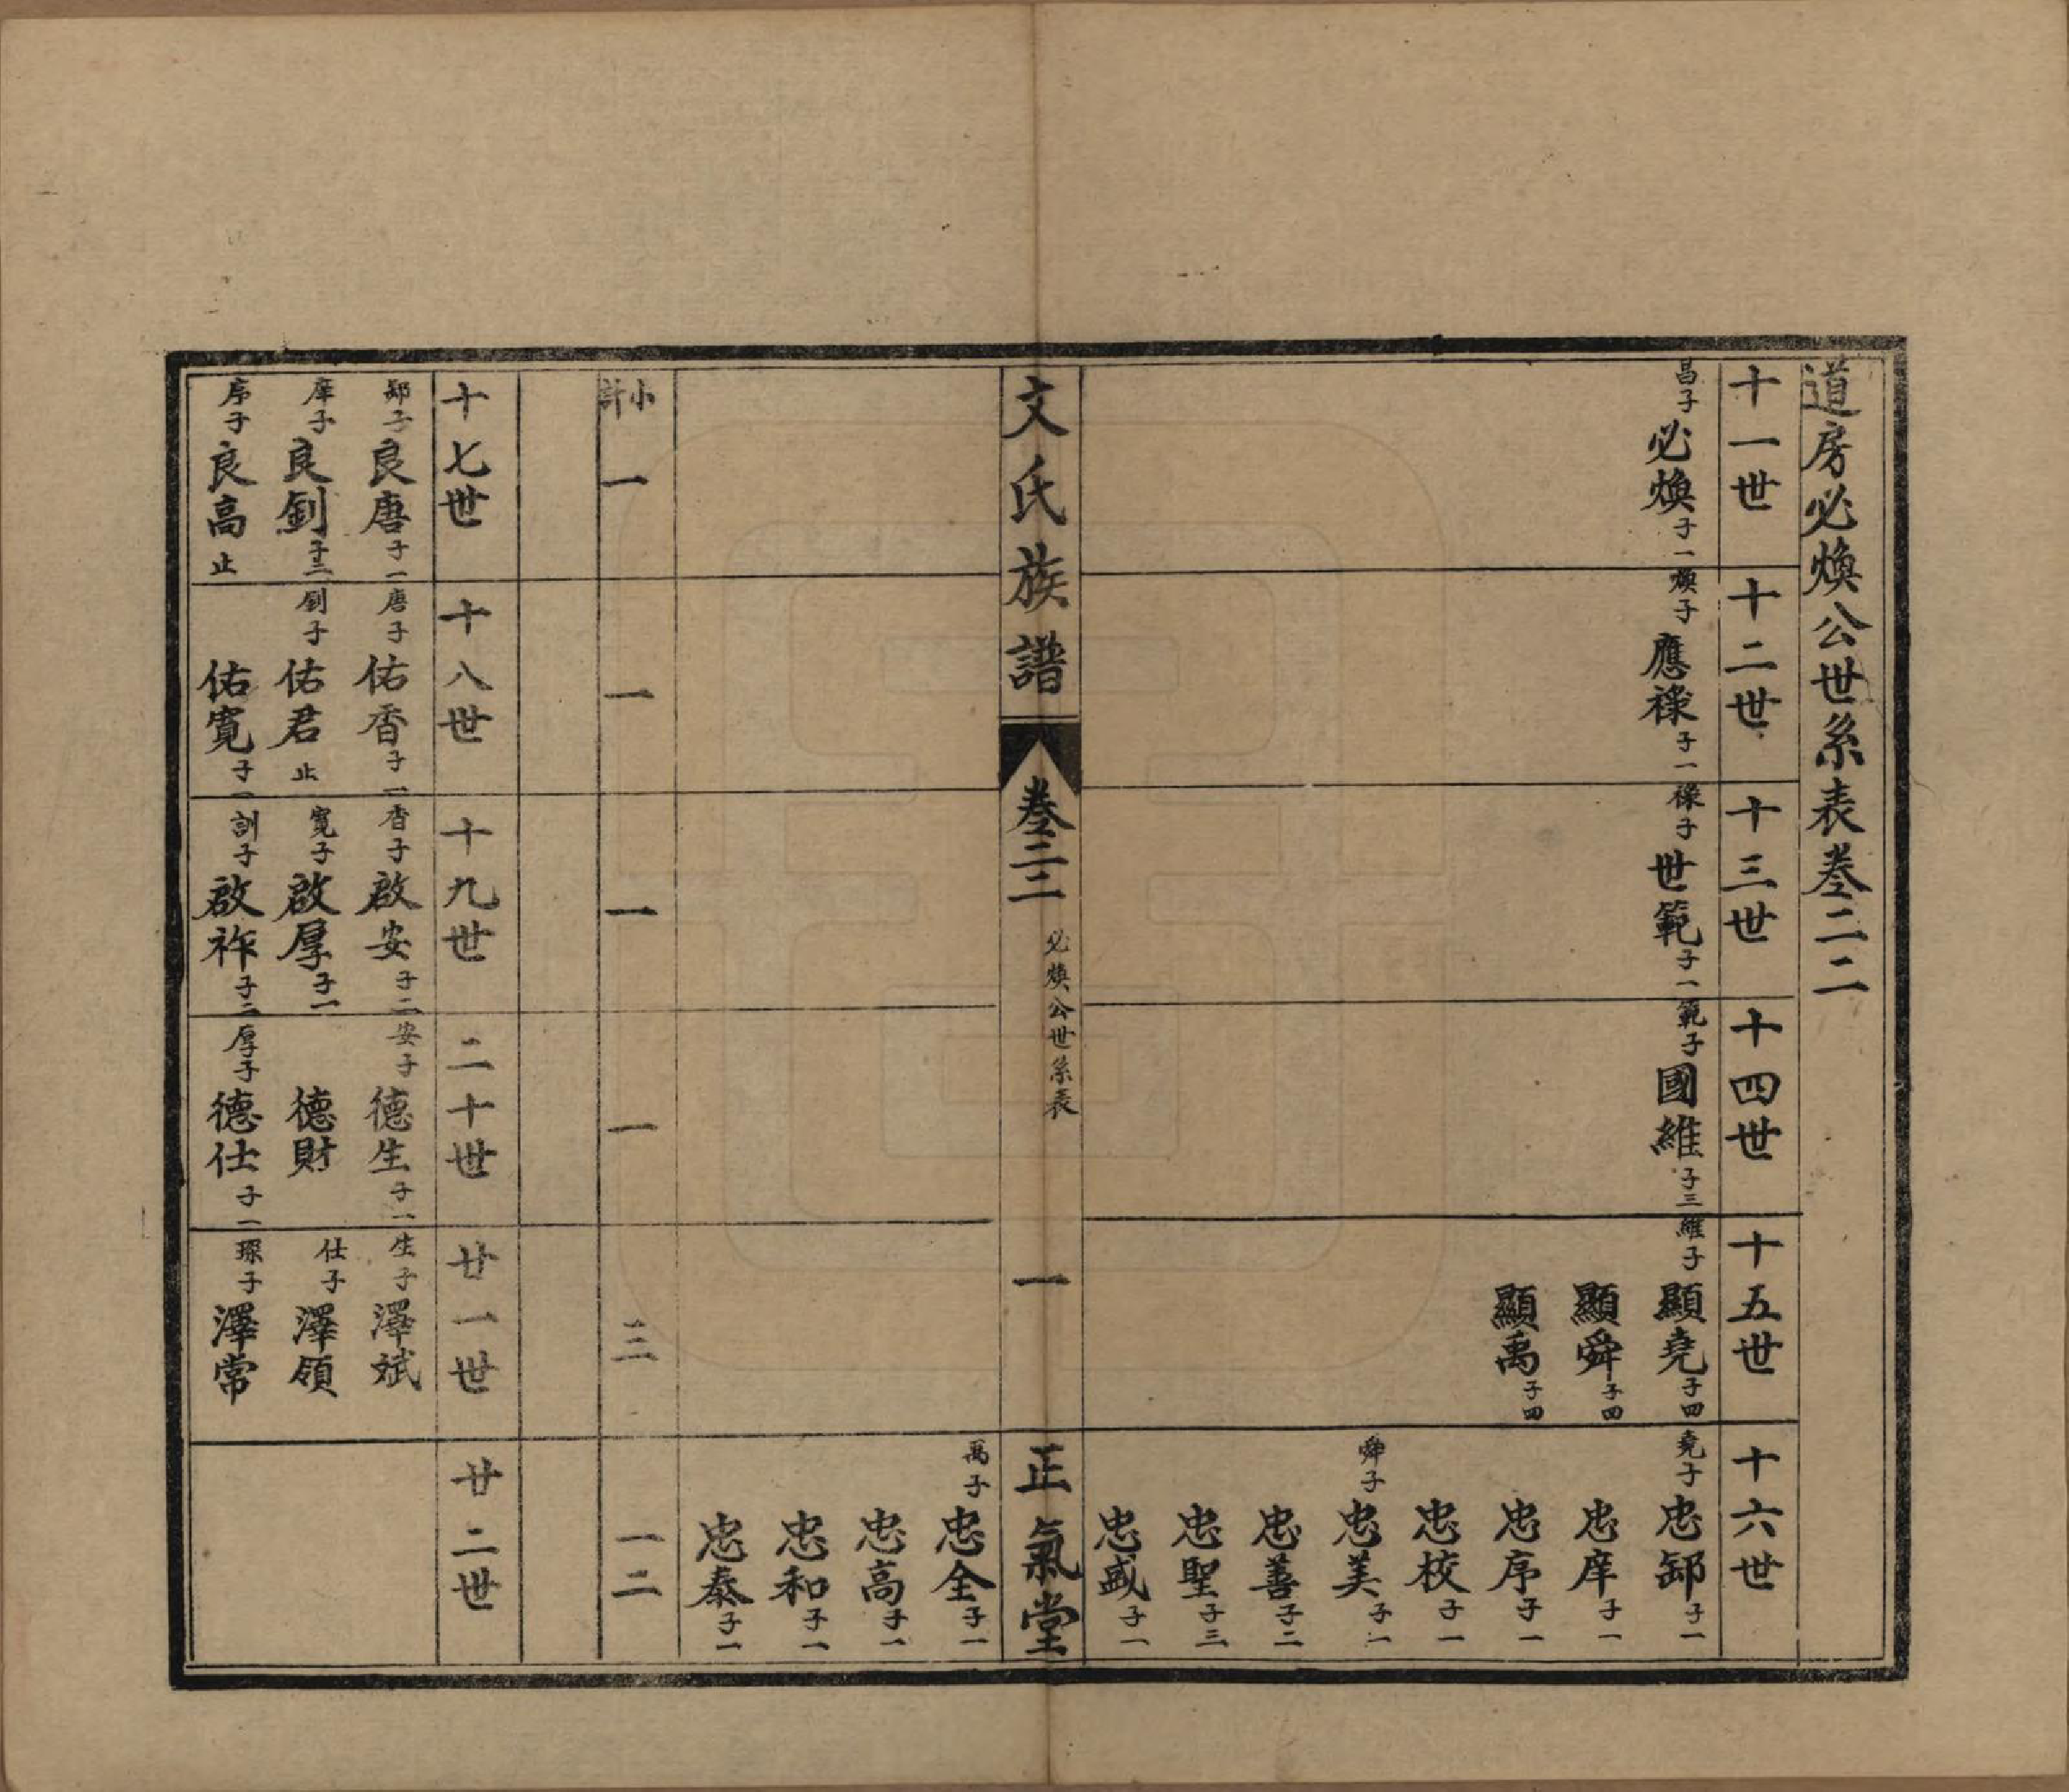 道房必煥公世系表卷二二
十一世
昌子必煥子一
十二世
煥子應祿子一
十三世
祿子世範子一
十四世
範子國維子三
十五世
維子顯堯子四
顯舜子四
顯禹子四
十六世
堯子忠鄁子一
忠庠子一
忠序子一
忠校子一
舜子忠美子一
忠善子二
忠聖子三
忠盛子一
文氏族譜
卷二二
必煥公世系表
一
正氣堂
禹子忠全子一
忠高子一
忠和子一
忠泰子一
小計
一
一
一
一
三
一二
十七世
鄁子良唐子一
庠子良釗子二
序子良高止
十八世
唐子佑香子一
釗子佑君止
佑寬子一
十九世
香子啟安子二
寬子啟厚子一
訓子啟祚子二
二十世
安子德生子一
德財
厚子德仕子一
廿一世
生子澤斌
仕子澤領
琛子澤常
廿二世